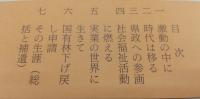 目次
一 激動の中に
二 時代は移る
三 県政への参画
四 社会福祉活動
に燃える
五 実業の世界に
生きて
六 国有林下げ戻
し申請
七 その生涯（総
括と補遺）